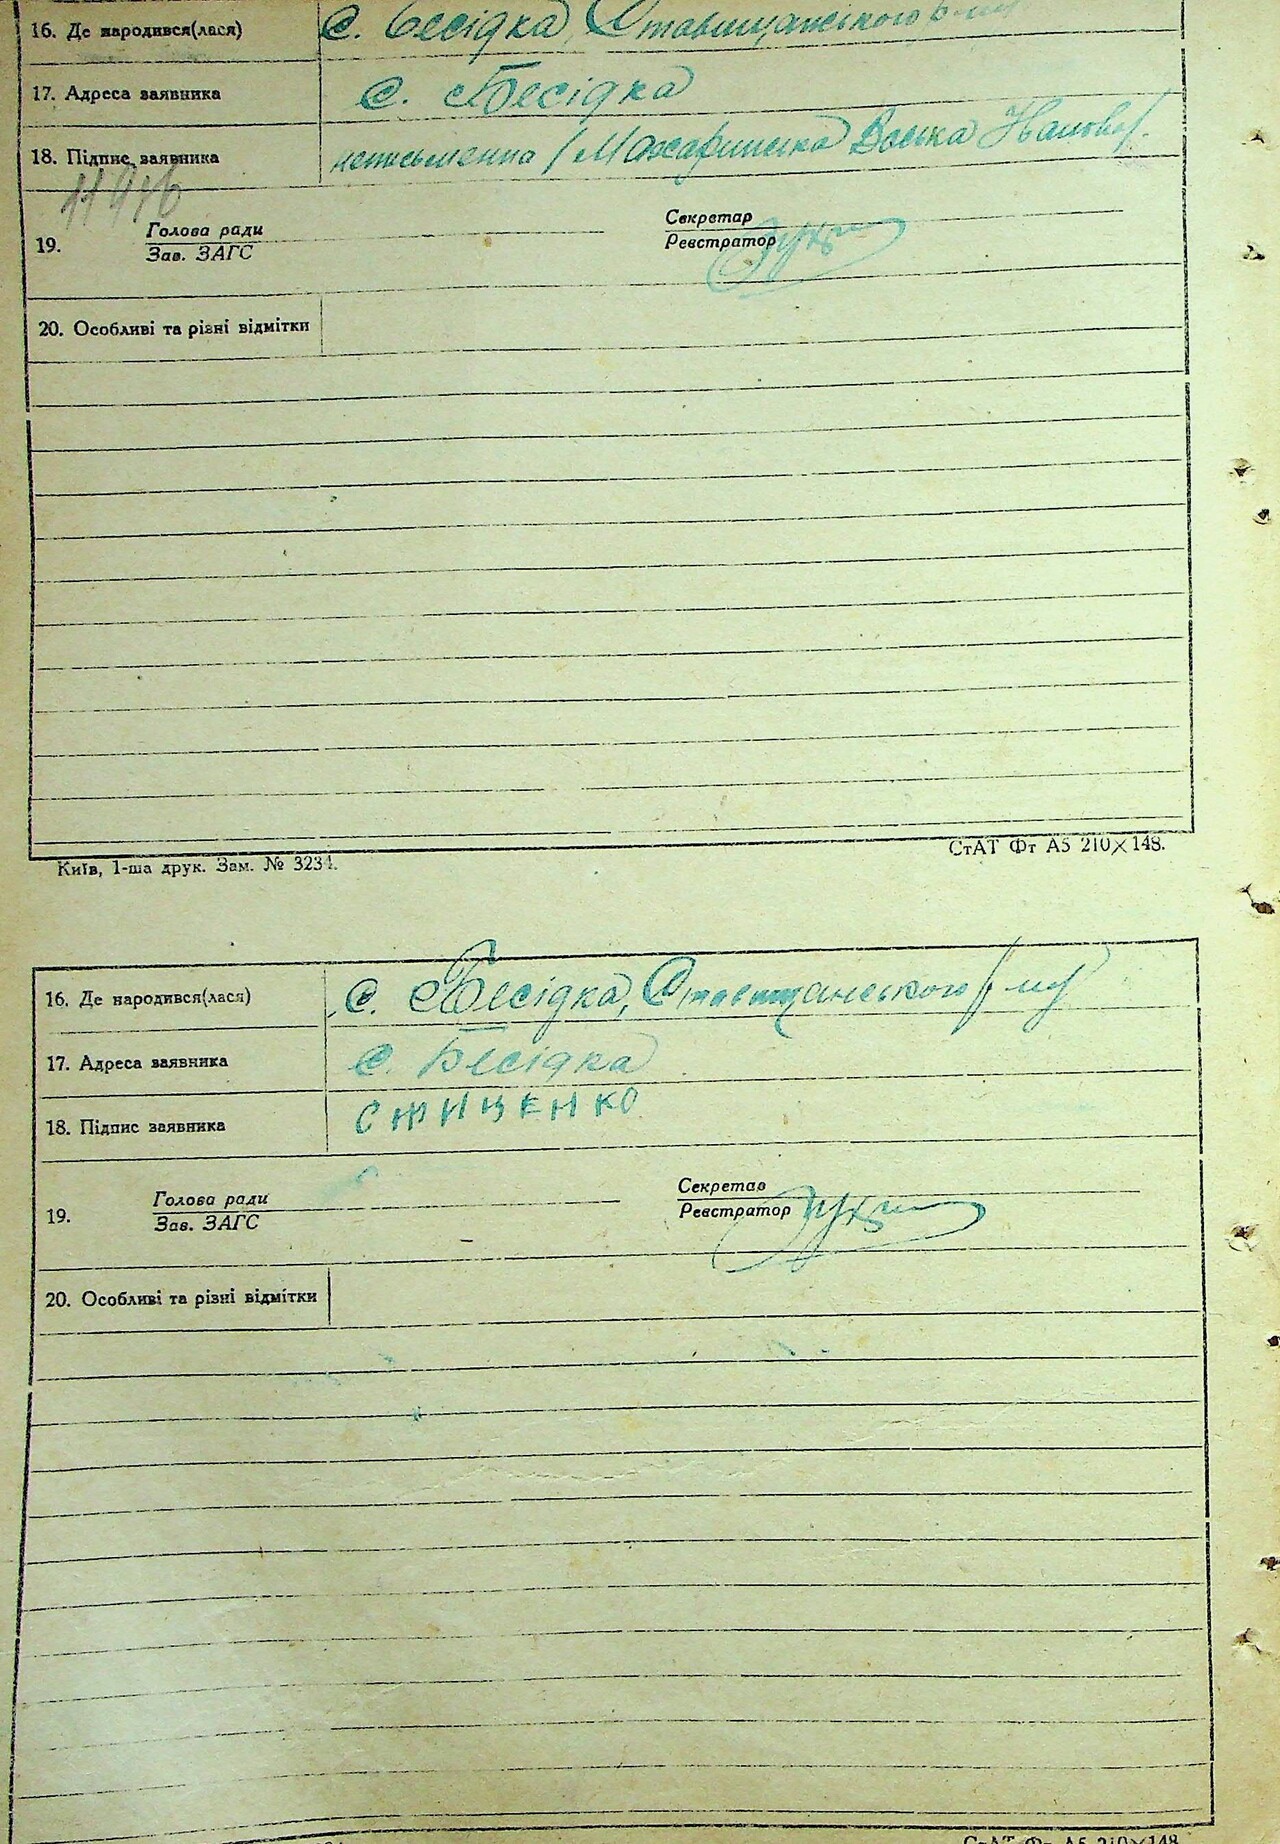 16. Де народився(лася) с. Бесідка, Ставищанського р-ну
17. Адреса заявника с. Бесідка
18. Підпис заявника неписьменна /
19. Голова ради Секретар
Зав. ЗАГС Реєстратор
20. Особливі та різні відмітки
Київ, 1-ша друк. Зам. № 3234. СтАТ Фт А5 210×148.
16. Де народився(лася) с. Бесідка, Ставищанського р-ну
17. Адреса заявника с. Бесідка
18. Підпис заявника
19. Голова ради Секретар
Зав. ЗАГС Реєстратор
20. Особливі та різні відмітки
СтАТ Фт А5 210×148